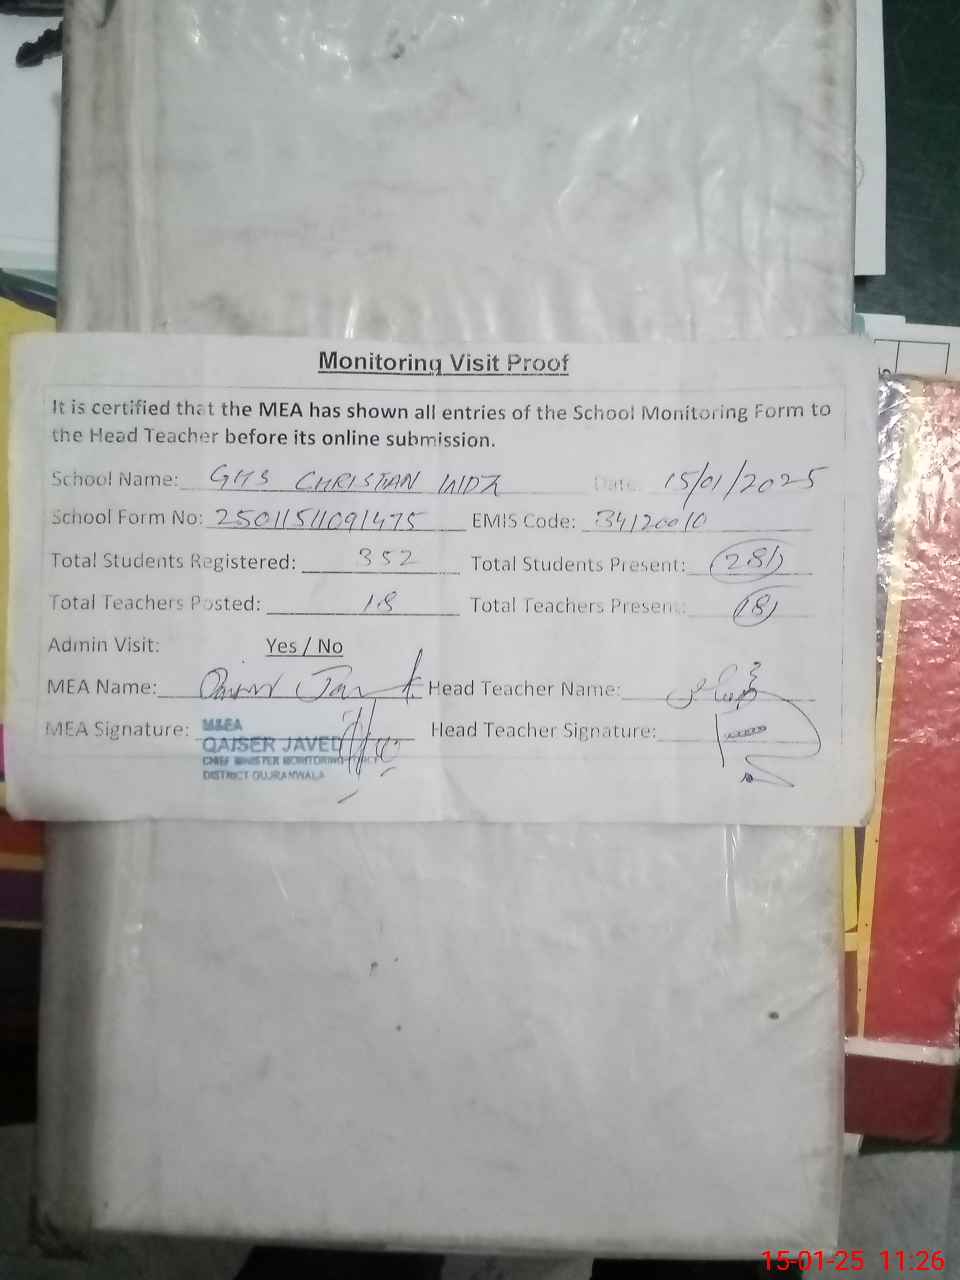 Monitoring Visit Proof
It is certified that the MEA has shown all entries of the School Monitoring Form to
the Head Teacher before its online submission.
School Name: GHS CHRISTIAN Date: 15/01/2025
School Form No: 25011511091475 EMIS Code: 34120010
Total Students Registered: 352 Total Students Present: 281
Total Teachers Posted: 18 Total Teachers Present: 18
Admin Visit: Yes / No
MEA Name: Head Teacher Name:
MEA Signature: Head Teacher Signature:
M&EA
QAISER JAVED
CHIEF MINISTER MONITORING FORCE
DISTRICT GUJRANWALA
15-01-25 11:26